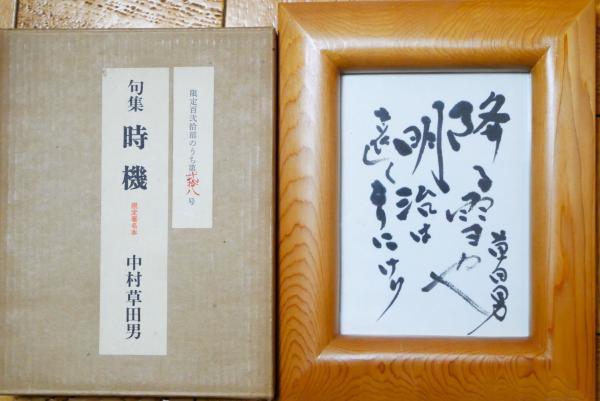 限定百弐拾部のうち第弐拾八号
句集 時機 限定署名本 中村草田男
降る雪や
明治は
遠くなりにけり
草田男